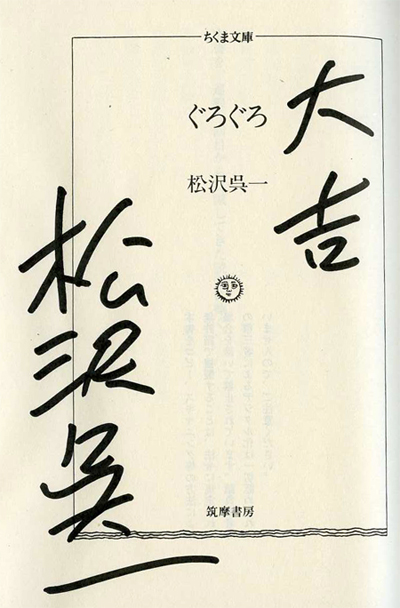 ちくま文庫
ぐろぐろ
松沢呉一
筑摩書房
大吉
松沢呉一